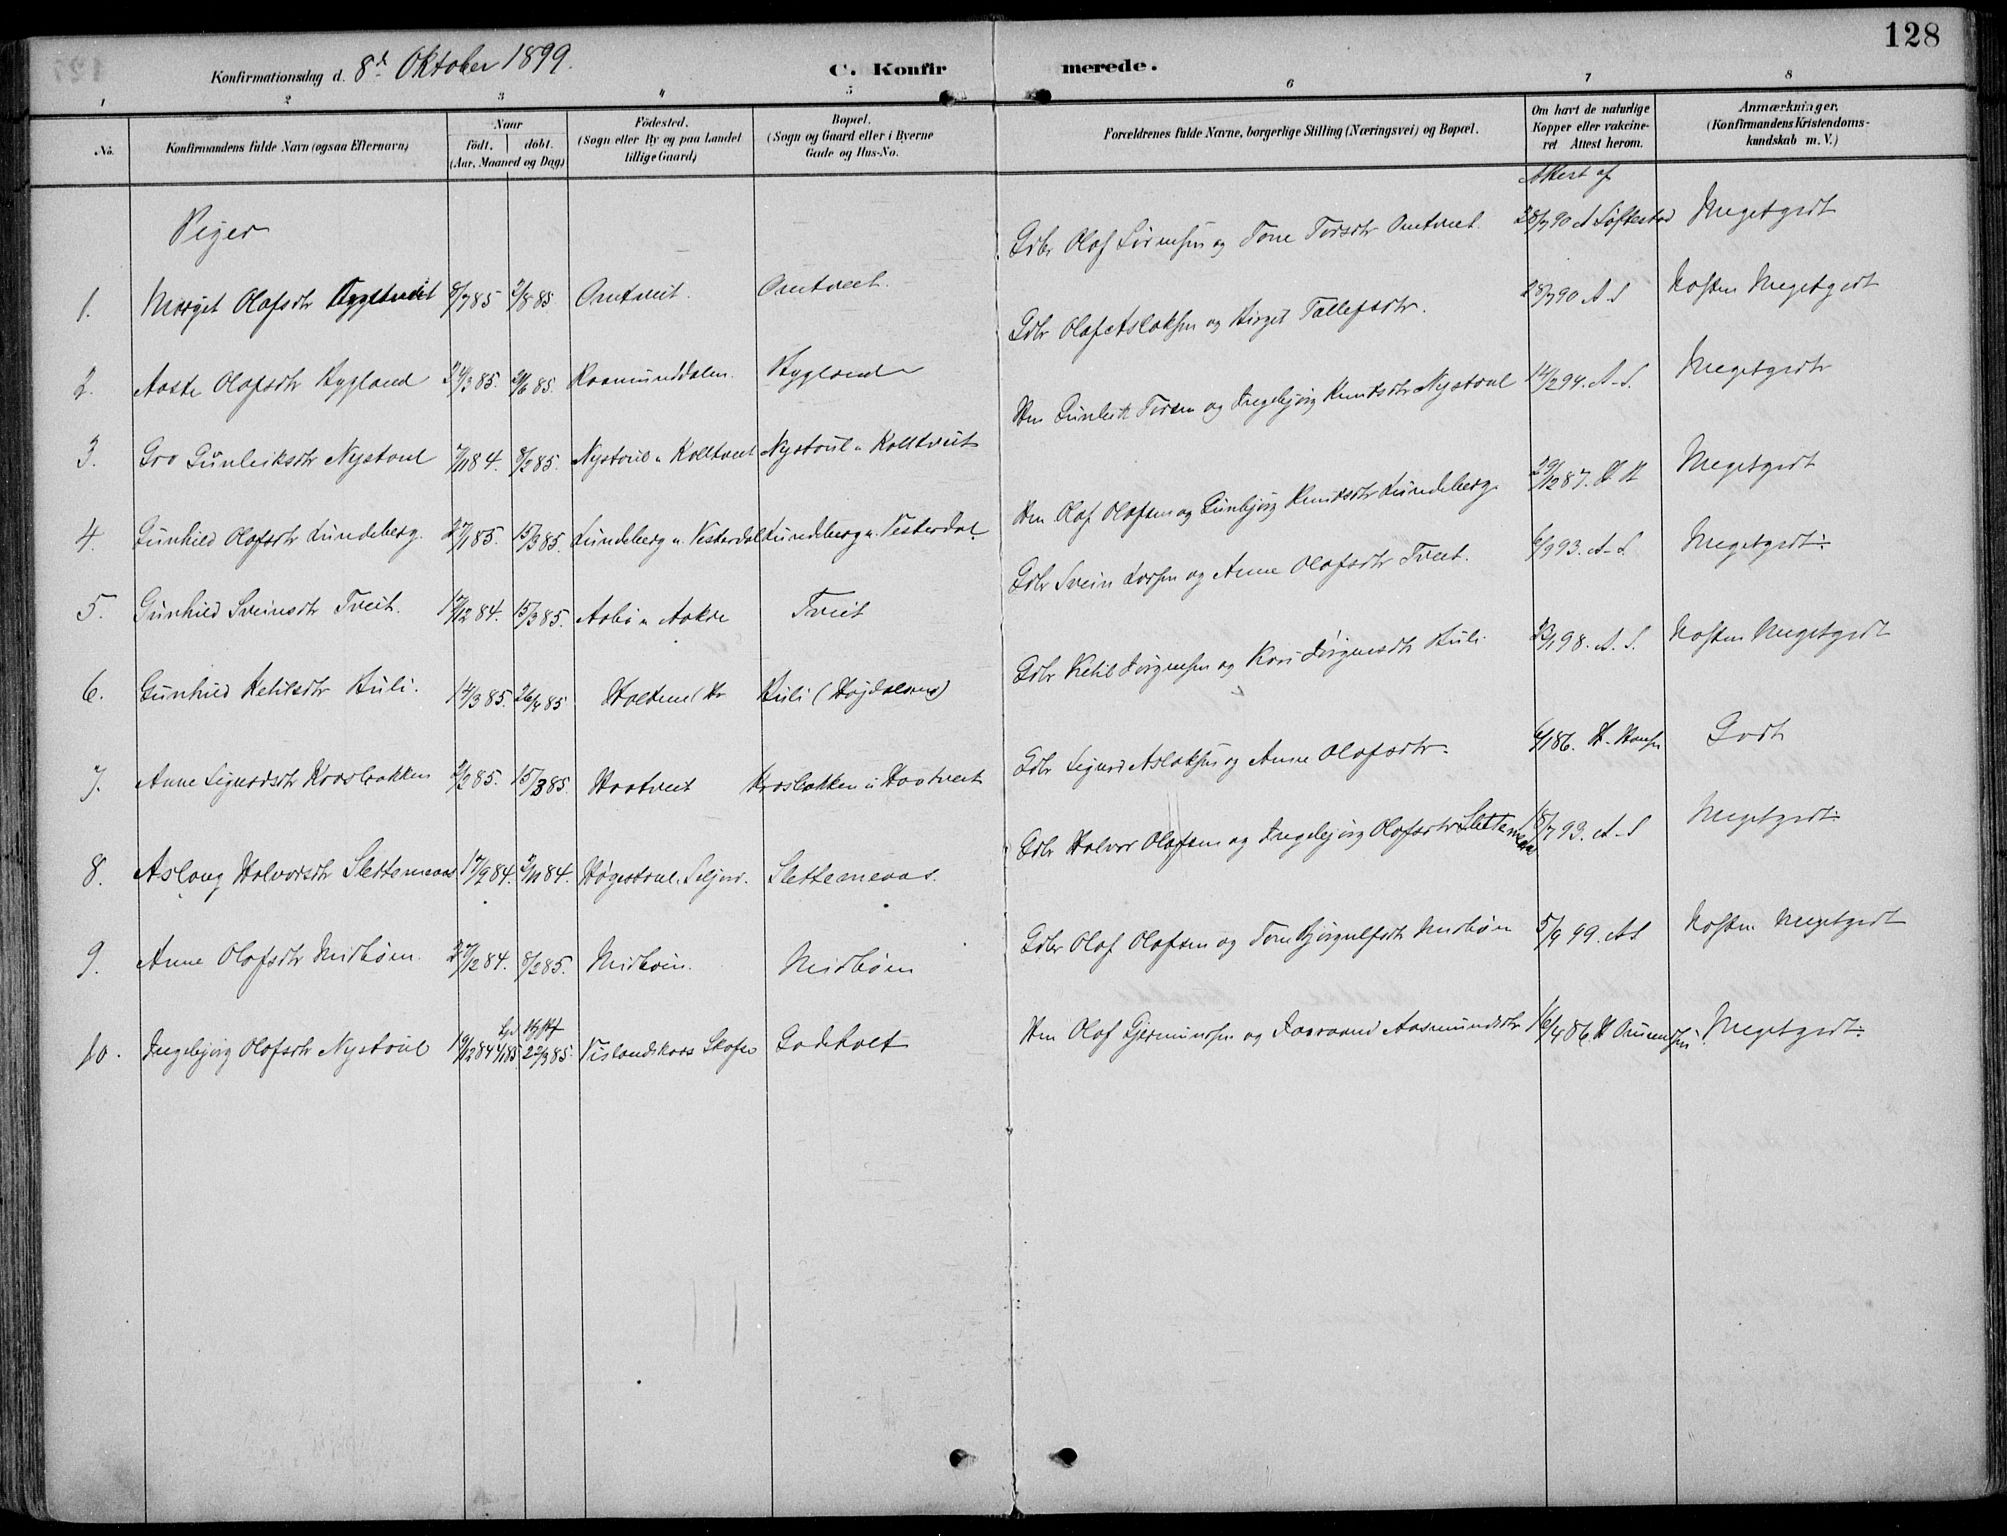 128
Konfirmationsdag d. 8d Oktober 1899. C. Konfirmerede.
1 2 3 4 5 6 7 8
No. Konfirmandens fulde Navn (ogsaa Efternavn) Naar født. døbt. (Aar, Maaned og Dag) Fødested. (Sogn eller By og paa Landet tillige Gaard) Bopæl. (Sogn og Gaard eller i Byerne Gade og Hus-No. Forældrenes fulde Navne, borgerlige Stilling (Næringsvei) og Bopæl. Om havt de naturlige Kopper eller vakcineret Attest herom. Anmærkninger. (Konfirmandens Kristendomskundskab m. V.)
Piger
Attest af
1. Margit Olafsdtr 8/7 85 2/8 85. Omtveit. Omtveit. Gdbr Olaf Sørensen og Tone Torsdtr Omtveit. 28/7 90 A Løftestad Megetgodt
2. Aaste Olafsdtr Rygland 24/3 85. 2/6 85. Raamunddalen. Rygland Gdbr Olaf Aslaksen og Birget Tallefsdtr. 28/7 90 A S Næsten Megetgodt
3. Gro Gunleiksdtr Nystoul 7/11 84. 8/2 85. Nystoul u. Kolltveit Nystoul u. Kolltveit Hm Gunleik Torsen og Ingebjørg Knutsdtr Nystoul 14/2 94. A. S. Megetgodt
4. Gunhild Olafsdtr Lundeberg. 27/1 85. 15/3 85. Lundeberg u. Vesterdal Lundeberg u. Vesterdal. Hm Olaf Olafsen og Gunbjørg Knutsdtr Lundeberg. 29/12 87. H H Megetgodt
5. Gunhild Sveinsdtr Tveit. 17/12 84. 15/3 85. Aabø u Aakre Tveit Gdbr Svein Larsen og Anne Olafsdtr Tveit. 6/9 93. A. S. Megetgodt÷
6. Gunhild Ketilsdtr Huli. 14/3 85. 26/4 85 Huli (Høydalsmo) Gdbr Ketil Jørgensen og Kari Jørgensdtr Huli. 98. A. S. Næsten Megetgodt
7. Anne Sigurdsdtr Kroslokken 2/2 85. 15/3 85. Haatveit Kroslokken u Haatveit Gdbr Sigurd Aslaksen og Anne Olafsdtr. 6/1 86. H. Hansen Godt
8. Aslaug Halvorsdtr Slettemeaas 17/9 84. 2/11 84. Høgestoul. Seljord. Slettemeaas. Gdbr Halvor Olafsen og Ingebjørg Olafsdtr Slettemeaas 18/7 93. A. S Megetgodt÷
9. Anne Olafsdtr Midbøen. 27/12 84. 8/2 85. Midbøen. Midbøen Gdbr Olaf Olafsen og Tone Bjørgulfsdtr Midbøen 5/9 99. A S Næsten Megetgodt
10. Ingebjørg Olafsdtr Nystoul 19/12 84 22/3 85. Godtholt Hm Olaf Gjermundsen og Aasmundsdtr 16/4 86. Megetgodt÷